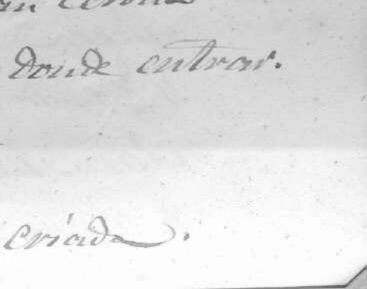 donde entrar.
criada.